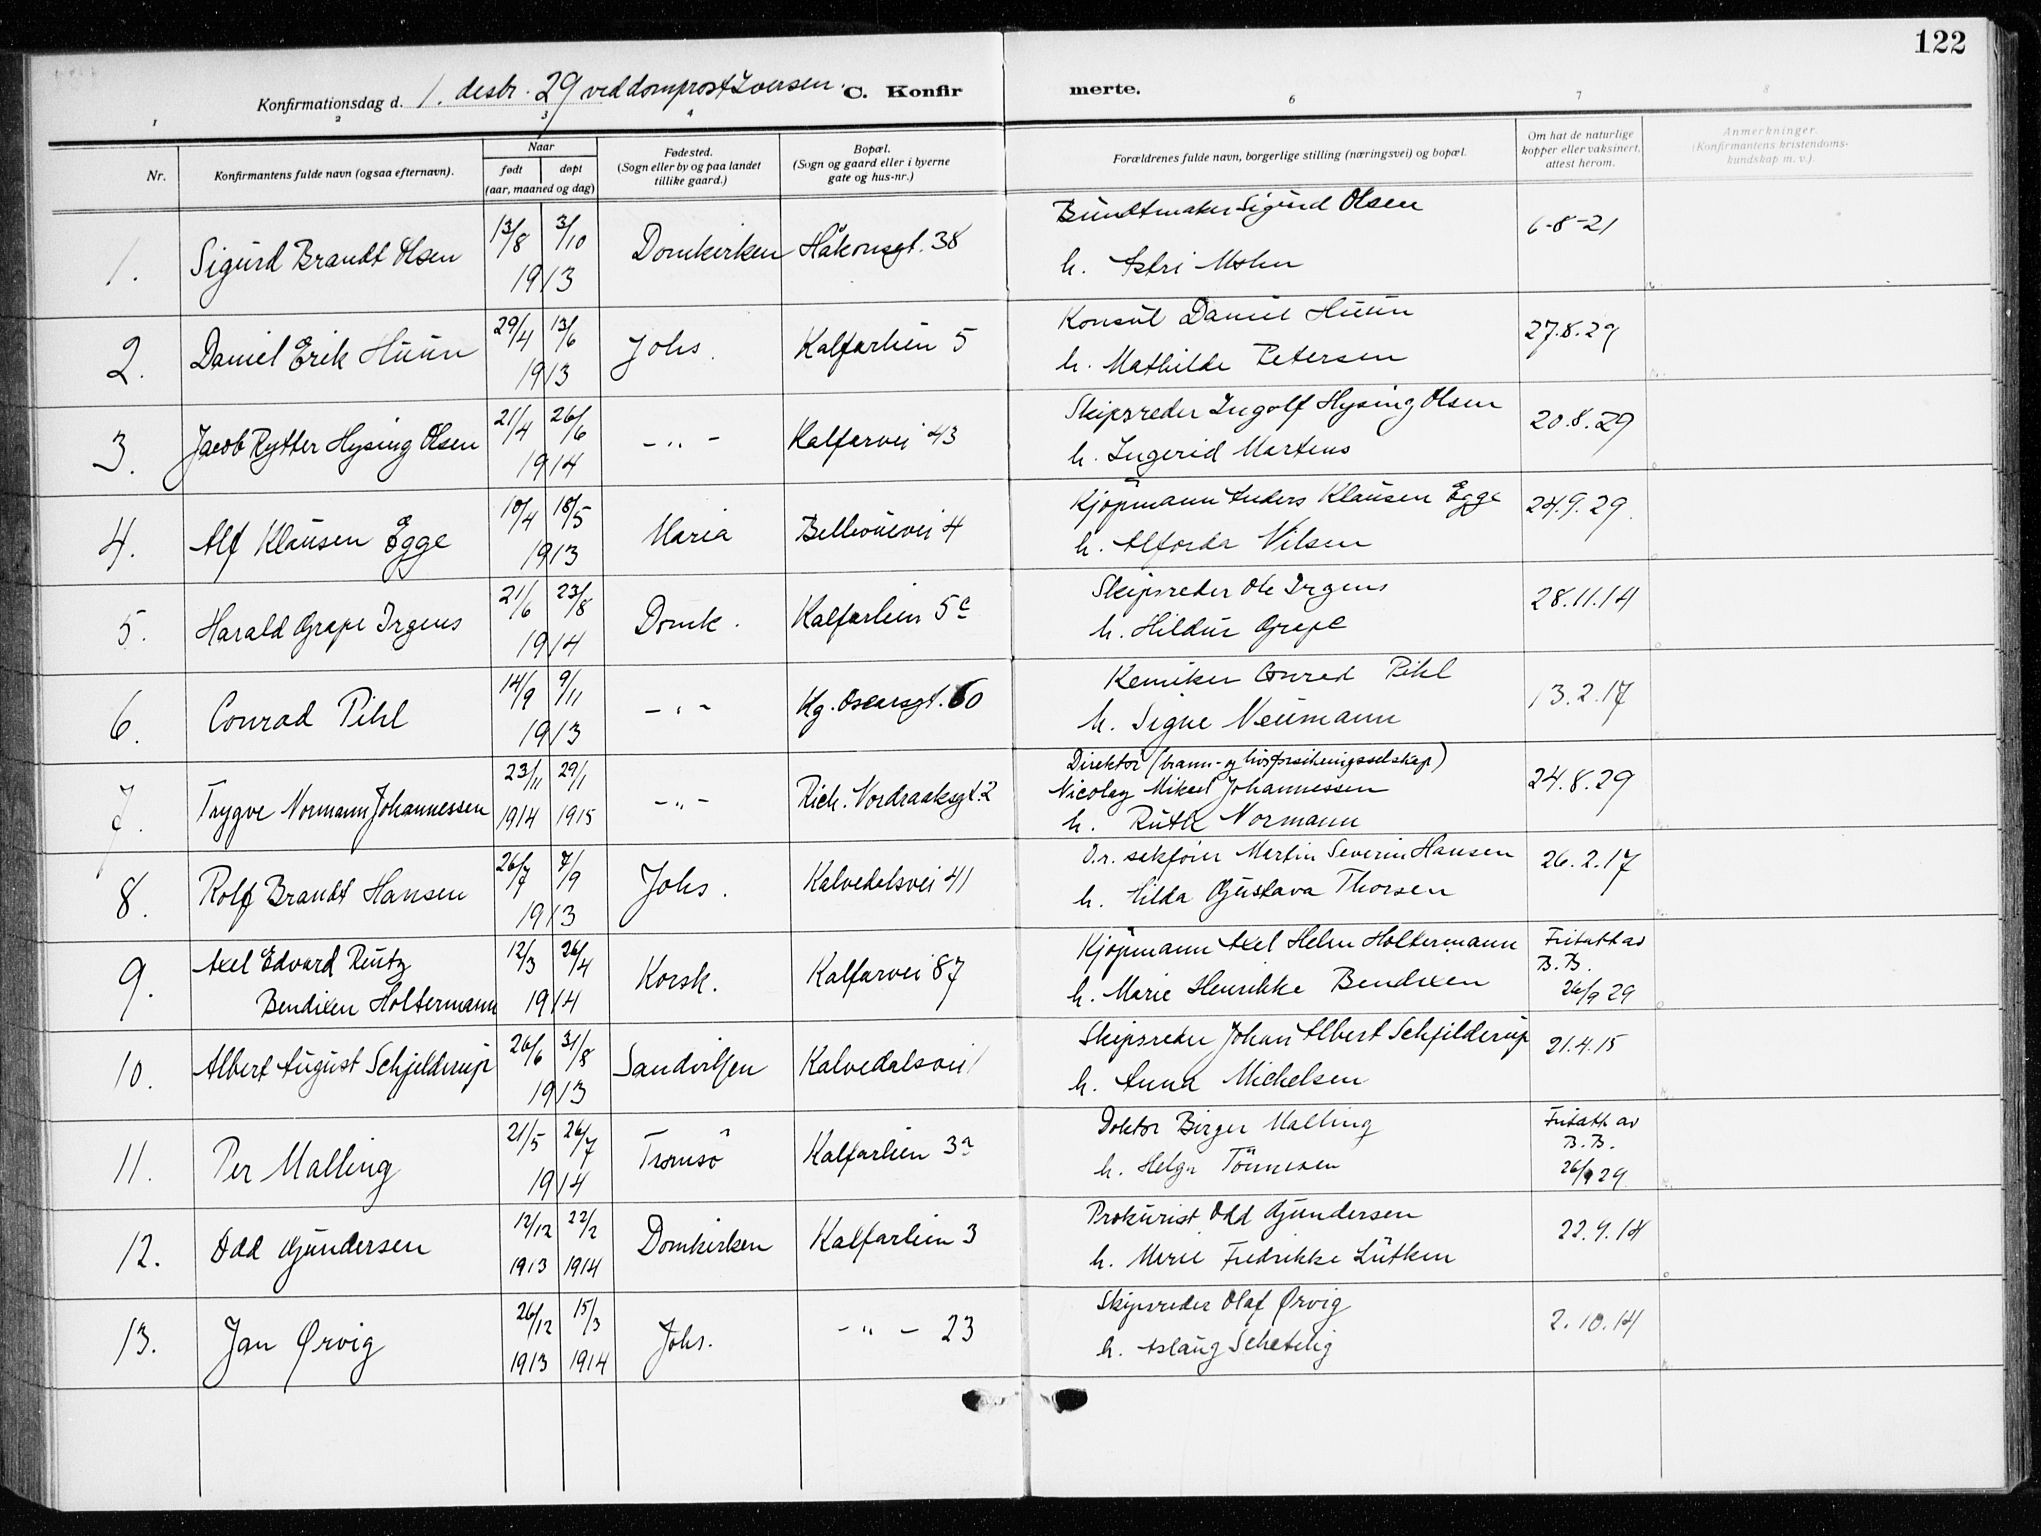 122
Konfirmationsdag d. 1. desbr. 29 ved domprost Iversen. C. Konfirmerte.
1 2 3 4 6 7 8
Nr. Konfirmantens fulde navn (ogsaa efternavn). Naar født døpt (aar, maaned og dag) Fødested. (Sogn eller by og paa landet tillike gaard.) Bopæl. (Sogn og gaard eller i byerne gate og hus-nr.) Forældrenes fulde navn, borgerlige stilling (næringsvei) og bopæl. Om hat de naturlige kopper eller vaksinert, attest herom. Anmerkninger. (Konfirmantens kristendoms- kundskap m. v.).
1. Sigurd Brandt Olsen 13/8 3/10 1913 Domkirken Håkonsgt. 38 Buntmaker Sigurd Olsen 6-8-21
h. Astri Mohn
2. Daniel Erik Huun 29/4 13/6 1913 Johs. Kalfarlien 5 Konsul Daniel Huun 27.8.29
h. Mathilde Petersen
3. Jacob Rytter Hysing Olsen 21/4 26/6 1914 - " - Kalfarvei 43 Skipsreder Ingolf Hysing Olsen 20.8.29
h. Ingerid Martens
4. Alf Klausen Egge 10/4 18/5 1913 Maria Bellevuevei 4 Kjøpmann Anders Klausen Egge 24.9.29.
h. Alforda Nilsen
5. Harald Grape Irgens 21/6 23/8 1914 Domk. Kalfarlien 5c Skipsreder Ole Irgens 28.11.14
h. Hildur Grape
6. Conrad Pihl 14/9 9/11 1913 - " - Kg. Oscarsgt. 60 Kemiker Conrad Pihl 13.2.17
h. Signe Neumann
7. Trygve Normann Johannessen 23/11 1914 29/1 1915 - " - Rich. Nordraaksgt. 2 Direktör (brann- og livsforsikringsselskap) 24.8.29
Nicolay Mikael Johannessen
h. Ruth Normann
8. Rolf Brandt Hansen 26/7 7/9 1913 Johs. Kalvedalsvei 41 O.r. sakfører Martin Severin Hansen 26.2.17
h. Hilda Gustava Thorsen
9. Axel Edvard Reutz 12/3 26/4 1914 Korsk. Kalfarvei 87 Kjøpmann Axel Helm Holtermann Fritatt av
Bendixen Holtermann h. Marie Henrikke Bendixen B.B.
26/9 29
10. Albert August Schjelderup 26/6 31/8 1913 Sandviken Kalvedalsvei 1 Skipsreder Johan Albert Schjelderup 21.4.15
h. Anna Michelsen
11. Per Malling 21/5 26/7 1914 Tromsö Kalfarlien 3a Doktor Birger Malling Fritatt av
h. Helga Tönnesen B.B.
26/9 29
12. Odd Gundersen 12/12 1913 22/2 1914 Domkirken Kalfarlien 3 Prokurist Odd Gundersen 22.9.14
h. Merie Fredrikke Lütken
13. Jan Ørvig 26/12 1913 15/3 1914 Johs. - " - 23 Skipsreder Olaf Ørvig 2.10.14
h. Aslaug Schetelig